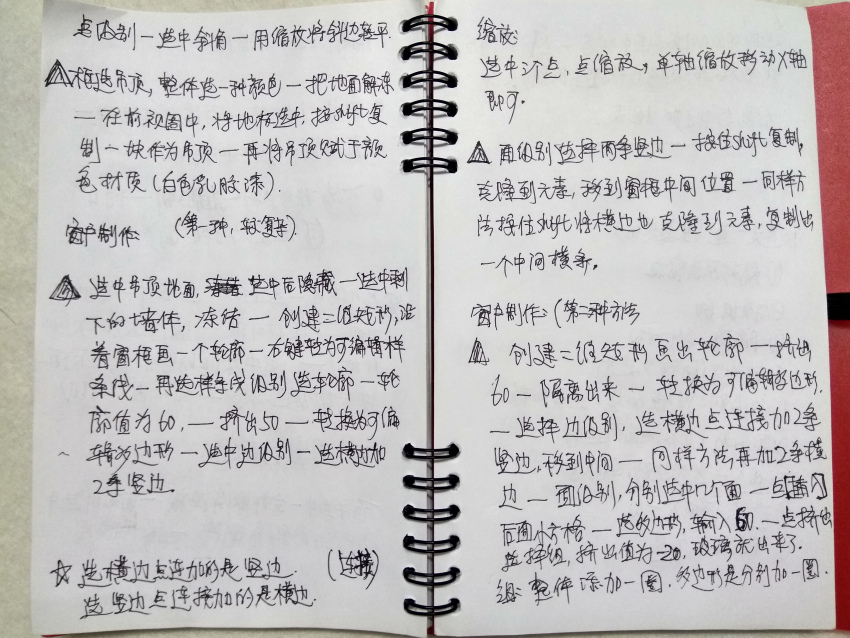 点级别—选中斜角—用缩放将斜边整平.
框选吊顶,整体选一种颜色—把地面解冻
—在前视图中,将地板选中,按shift复
制一块作为吊顶—再将吊顶赋于颜
色材质(白色乳胶漆).
窗户制作: (第一种,较复杂)
选中吊顶地面, 选中后隐藏—选中剩
下的墙体,冻结—创建二维矩形,沿
着窗框画一个轮廓—右键转为可编辑样
条线—再选样条线级别选轮廓—轮
廓值为60,—挤出50—转换为可编
辑多边形—选中边级别—选横边加
2条竖边.
☆ 选横边点连加的是竖边. (连接)
选竖边点连接加的是横边.
缩放:
选中2个点,点缩放,单轴缩放移动X轴
即可.
面级别选择两条竖边—按住shift复制,
克隆到元素,移到窗框中间位置—同样方
法按住shift将横边也克隆到元素,复制出
一个中间横条.
窗户制作:(第二种方法
创建二维矩形画出轮廓—挤出
60—隔离出来—转换为可编辑多边形.
—选择边级别,选横边点连接加2条
竖边,移到中间—同样方法再加2条横
边—面级别,分别选中几个面—点插入
后面小方格—选多边形,输入60.—点挤出
选择组,挤出值为-20.玻璃就出来了.
组:整体添加一圈.多边形是分别加一圈.